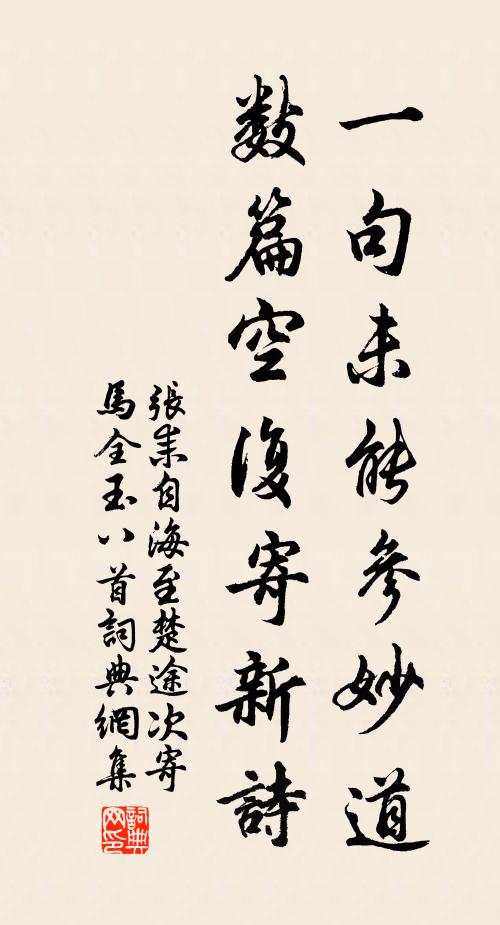 一句未能參妙道
數篇空復寄新詩
張耒自海至楚途次寄
馬全玉八首詞典網集
詞典
网印